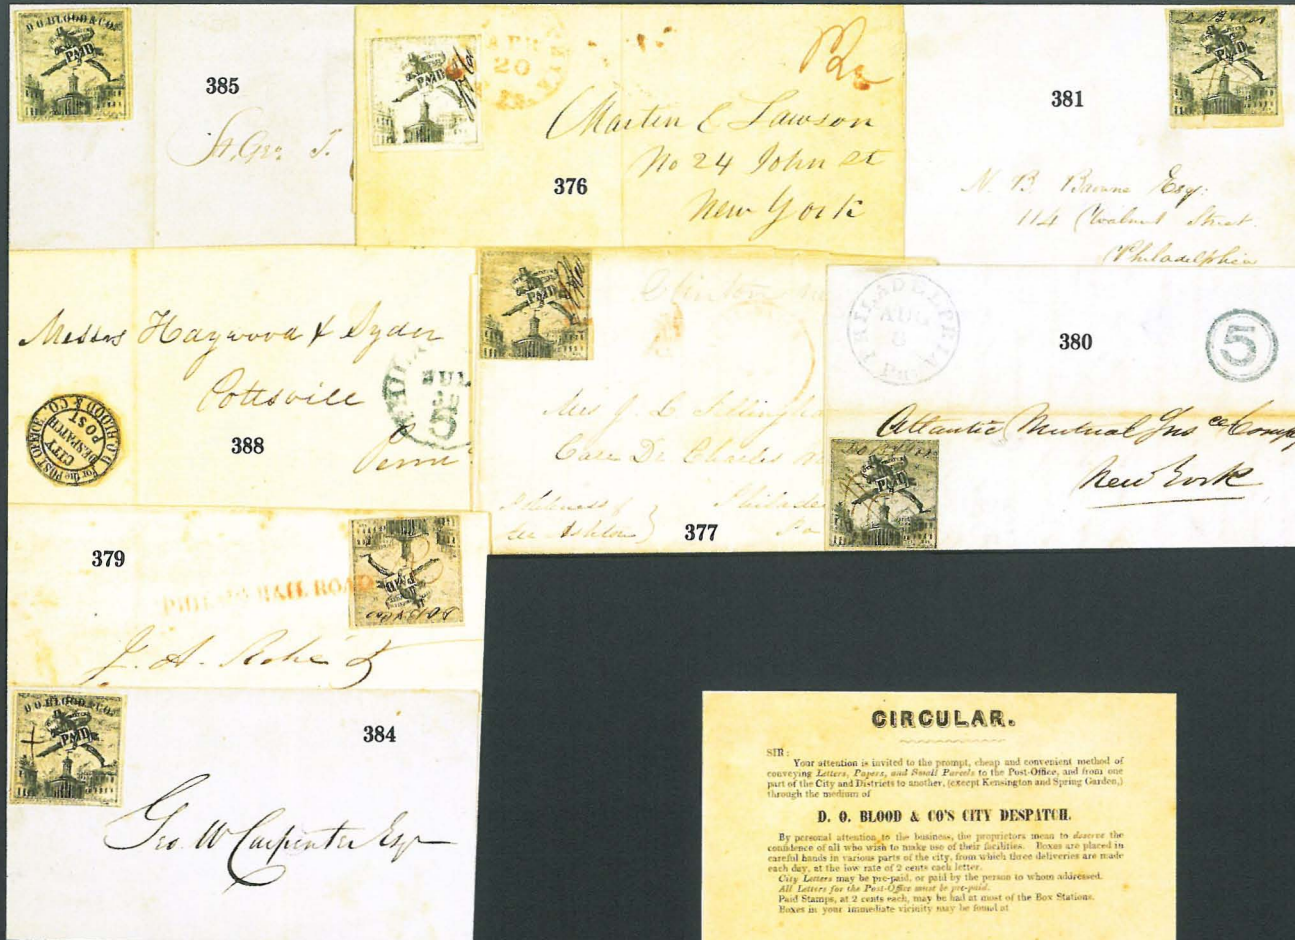 D.O. BLOOD & CO.
PAID
385
St. Geo. T.
PAID
20
376
Martin E Lawson
No 24 John St
New York
PAID
381
N. B. Browne Esq.
114 Walnut Street
Philadelphia
Messrs Haywood & Syder
Pottsville
Penna
388
For the POST OFFICE
CITY
DESPATCH
POST
D.O. BLOOD & CO.
JUL
5
PAID
Mrs J. L.
Care Dr Charles
Philade
Pa
377
PHILADELPHIA
AUG
8
Pa.
380
5
Atlantic Mutual Insce Comp
New York
PAID
379
RAIL ROAD
PAID
J. A.
D.O. BLOOD & CO.
PAID
384
Geo. W Carpenter Esq
CIRCULAR.
SIR:
Your attention is invited to the prompt, cheap and convenient method of
conveying Letters, Papers, and Small Parcels to the Post-Office, and from one
part of the City and Districts to another, (except Kensington and Spring Garden,)
through the medium of
D. O. BLOOD & CO'S CITY DESPATCH.
By personal attention to the business, the proprietors mean to deserve the
confidence of all who wish to make use of their facilities. Boxes are placed in
careful hands in various parts of the city, from which three deliveries are made
each day, at the low rate of 2 cents each letter.
City Letters may be pre-paid, or paid by the person to whom addressed.
All Letters for the Post-Office must be pre-paid.
Paid Stamps, at 2 cents each, may be had at most of the Box Stations.
Boxes in your immediate vicinity may be found at